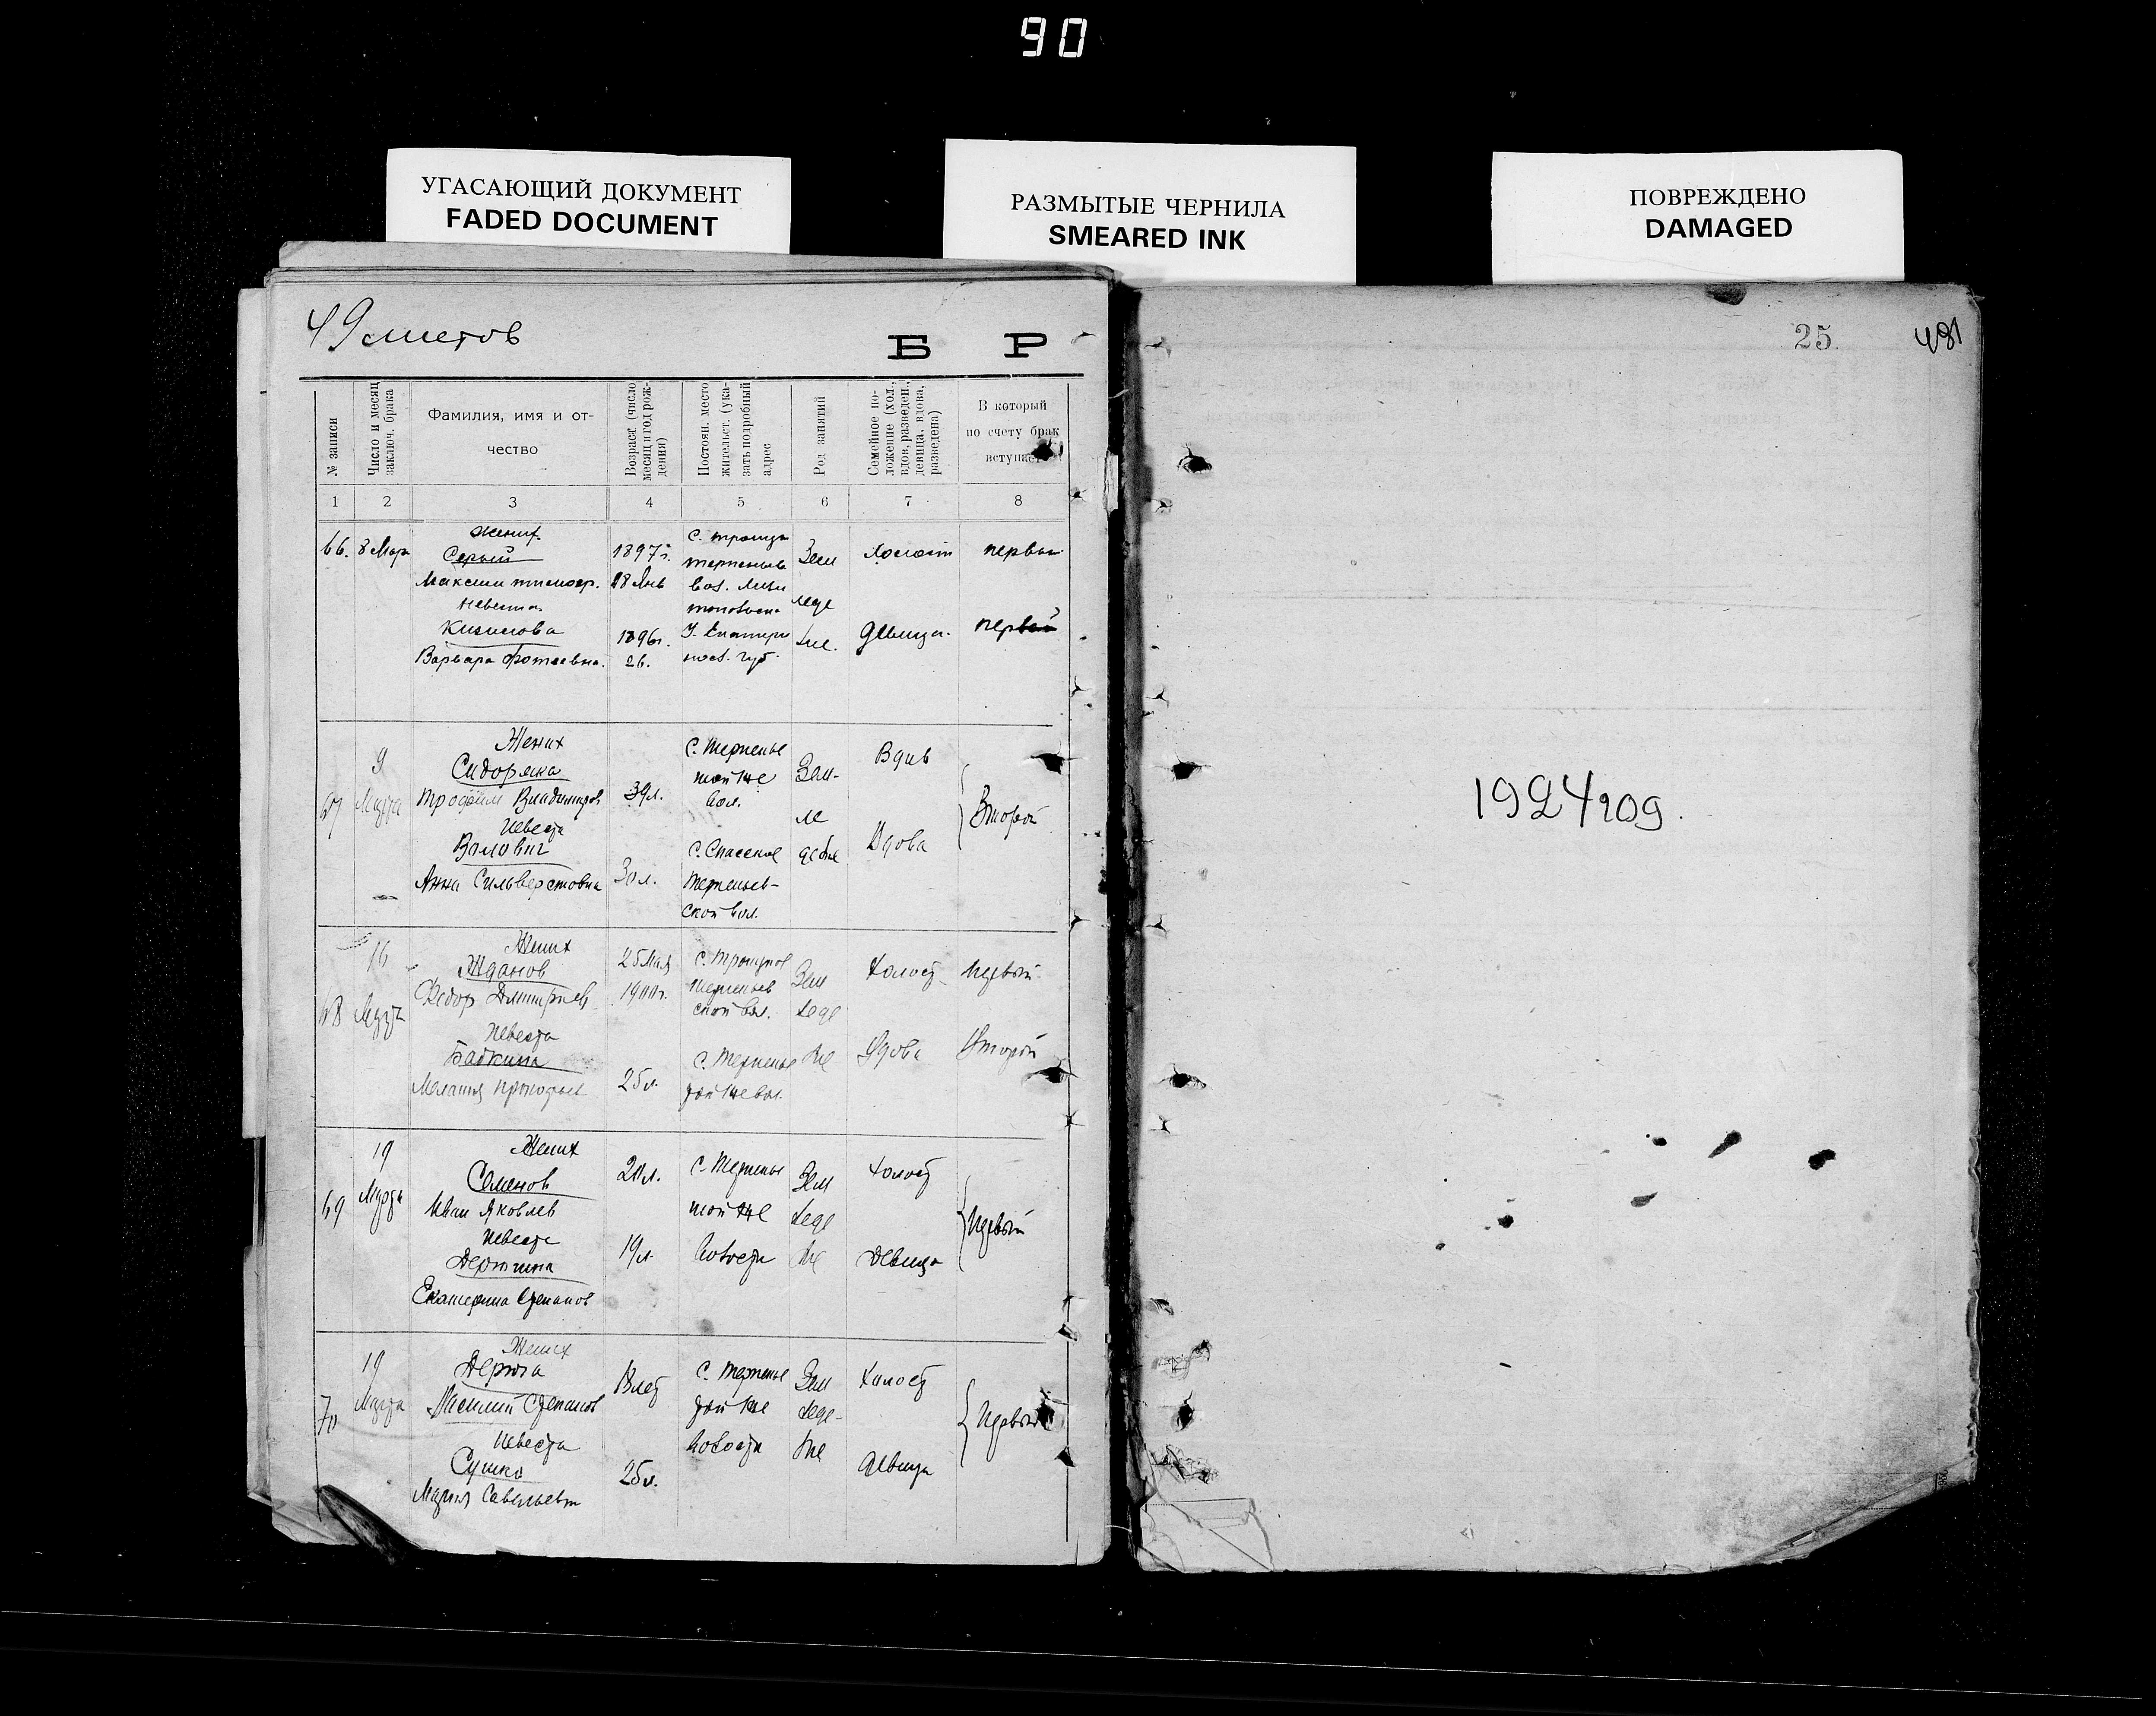 90
УГАСАЮЩИЙ ДОКУМЕНТ
FADED DOCUMENT
РАЗМЫТЫЕ ЧЕРНИЛА
SMEARED INK
ПОВРЕЖДЕНО
DAMAGED
49 листов
Б Р
№ записи
Число и месяц
заключ. брака
Фамилия, имя и от-
чество
Возраст (число
месяц и год рож-
дения)
Постоян. место
жительст. (ука-
зать подробный
адрес
Род занятий
Семейное по-
ложение (хол.,
вдов, разведен.,
девица, вдова,
разведена)
В который
по счету брак
вступает
1 2 3 4 5 6 7 8
66. 8 Мар
Жених
Серый
Максим тимоф.
Невеста
Варвара Фотиевна.
1897г.
28 Янв
1896г.
26.
Зем
леде
лие.
Холост
девица.
первый
первый
67
9
Марта
Жених
Сидоряка
Трофим Владимиров
Невеста
Анна Сильверстовна
39л.
30л.
С. Терпенье
той же
вол.
С. Спасское
Терпеньев-
ской вол.
Зем-
ле
делие
Вдов
Вдова
Второй
68
16
Марта
Жених
Жданов
Федор Дмитриев
Невеста
Мелания Прокофьев
25 Мая
1900г.
25л.
С. Троицкое
Терпеньев
ской вол.
С. Терпенье
той же вол.
Зем
леде
лие
Холост
Вдова
Первый
Второй
69
19
Марта
Жених
Семенов
Иван Яковлев
Невеста
Екатерина Степанов
20л.
19л.
С. Терпенье
той же
волости
Зем
леде
лие
Холост
Девица
Первый
70
19
Марта
Жених
Дерюга
Василий Степанов
Невеста
Сушко
Мария Савельевн
18 лет
25л.
С. Терпенье
той же
волости
Зем
леде-
лие
Холост
Девица
Первый
25
481
1924 год.